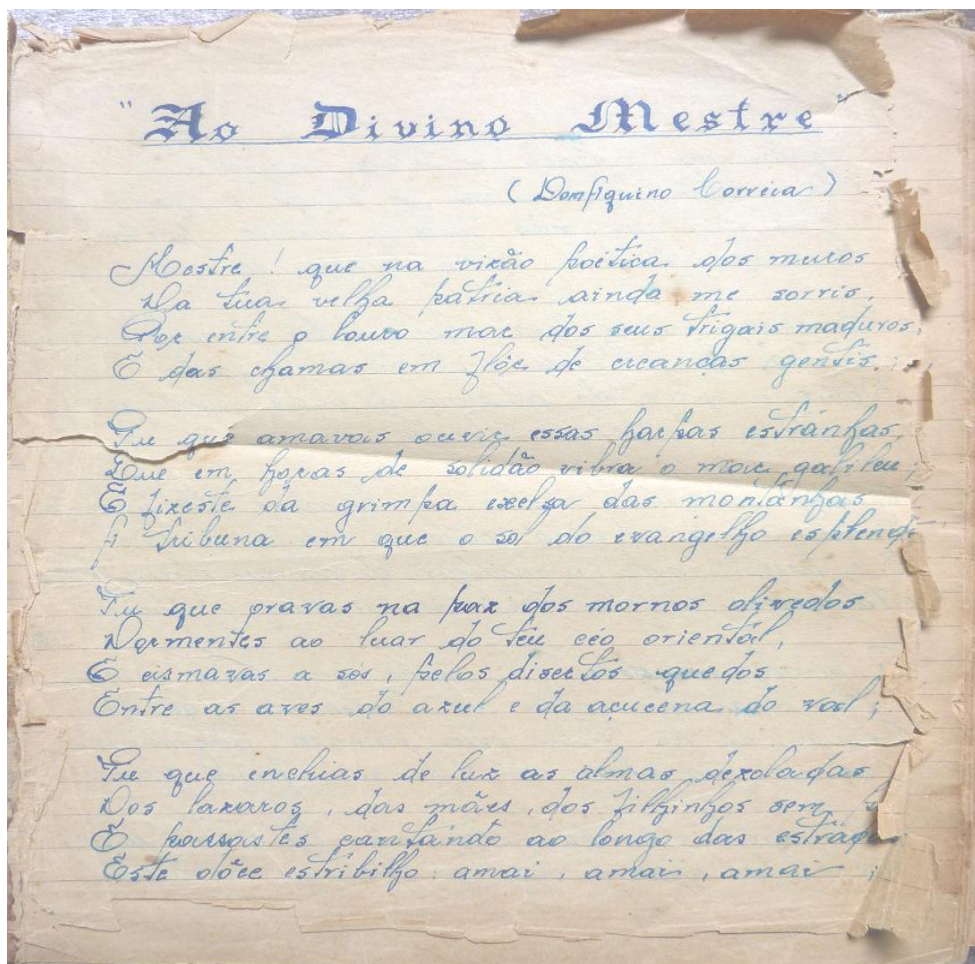 "Ao Divino Mestre"
(Dom Aquino Correia)
Mestre! que na vizão poética dos muros
Da tua velha pátria ainda me sorris,
Por entre o louro mar dos seus trigais maduros,
E das chamas em flôr de creanças gentís;
Tu que amavas ouvir essas harpas estránhas,
Que em horas de solidão vibra o mar galileu;
E fizeste da grimpa exelsa das montánhas
A tribuna em que o sol do evangelho esplende
Tu que oravas na paz dos mornos olivedos
Dormentes ao luar do teu céo orientál,
E cismavas a sós, pelos disertos quedos
Entre as aves do azul e da açucena do val;
Tu que enchias de luz as almas dezoladas
Dos lazaros, das mães, dos filhinhos sem
E passastes cantando ao longo das estradas
Este dôce estribilho: amai, amai, amai;